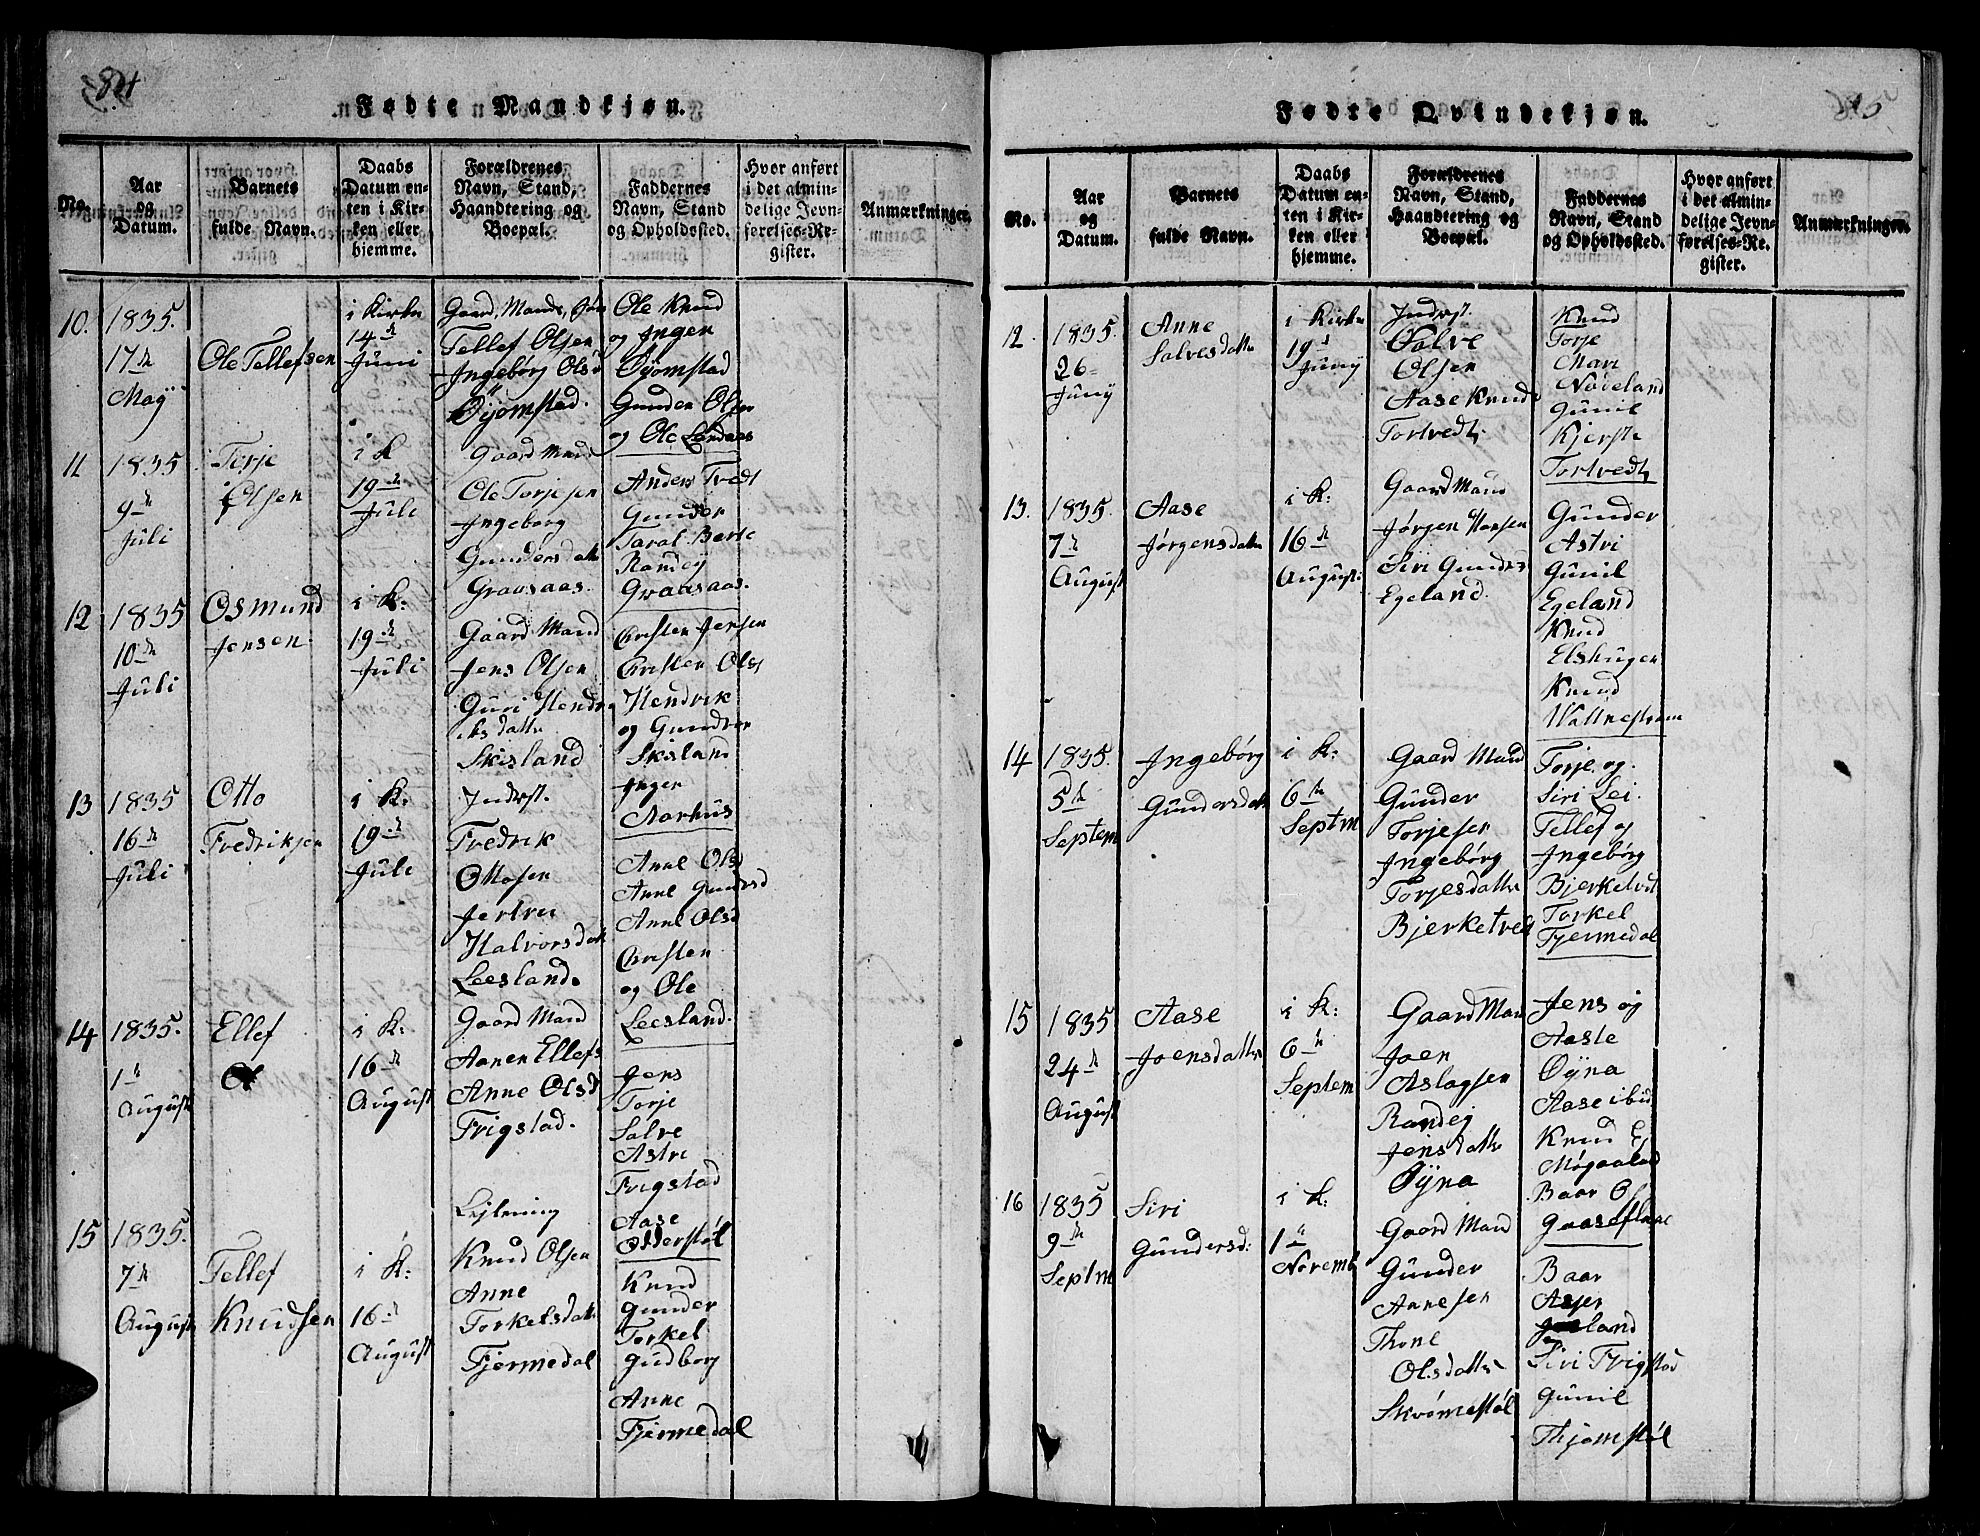 Fødte Mandkjøn.
No.
Aar
og
Datum.
Barnets
fulde Navn.
Daabs
Datum en-
ten i Kir-
ken eller
hjemme.
Forældrenes
Navn, Stand,
Haandtering og
Boepæl.
Faddernes
Navn, Stand
og Opholdssted.
Hvor anført
i det almin-
delige Jevn-
førelses-Re-
gister.
Anmærkninger.
10.
1835.
17de
Maÿ
Ole Tellefsen
i Kirke
14de
Juni
Gaard, Mands,
Tellef Olsen
Ingebørg Olsd
Øÿomstad.
Ole Knud
og Ingen
Øÿomstad
Gunder Olsen
og Ole Landaas
11
1835
9de
Juli
Terje
Olsen
i K
19de
Juli
Gaard Mand
Ole Torjesen
Ingeborg
Gundersdatte
Graasaas.
Anders Tvedt
Gunder
Taral. Berte
Randej
Graasaas.
12
1835
10de
Juli
Osmund
Jensen
i K:
19de
Juli
Gaard Mand
Jens Olsen
Guri Hendr
iksdatte
Skisland
Christen Jensen
Christen Olss
Hendrik
og Gundvor
Skisland
Inger
Aarhus
13
1835
16de
Juli
Otto
Fredriksen
i K:
19de
Juli
Inderst.
Fredrik
Ottosen
Jertru
Halvorsdatt
Leesland.
Anne Olsd
Anne Gundersd
Anne Olsd
Christen
og Ole
Leesland.
14
1835.
1de
August
Ellef
i K:
16de
August
Gaard Mand
Aanen Ellefs
Anne Olsd
Frigstad.
Jens
Torje
Salve
Astri
Frigstad
Aase
Odderstøl
15
1835.
7de
August
Tellef
Knudsen
i K:
16de
August
Lejlening
Knud Olsen
Anne
Torkelsdatte
Fjermedal
Knud
Gunder
Torkel
Gudborg
Anne
Fjermedal
Fødte Qvindekjøn.
No.
Aar
og
Datum.
Barnets
fulde Navn.
Daabs
Datum en-
ten i Kir-
ken eller
hjemme.
Forældrenes
Navn, Stand,
Haandtering og
Boepæl.
Faddernes
Navn, Stand
og Opholdssted.
Hvor anført
i det almin-
delige Jevn-
førelses-Re-
gister.
Anmærkninger.
12.
1835.
26
Junÿ
Anne
Salvesdatte
i Kirke
19
Junÿ
Inderst.
Salve
Olsen
Aase Knuds
Tortvedt.
Knud
Torje
Mari
Nødeland
Gunil
Kjerste
Tortvedt
13.
1835.
7de
August
Aase
Jørgensdatte
i K:
16de
August.
Gaard Mand
Jørjen Hansen
Siri Gunders
Egeland.
Gunder
Astri
Gunil
Egeland
Knud
Elshugen
Knud
Wattnestrøm
14
1835.
5de
Septem
Ingebørg
Gundersdatte
i K:
6de
Septm
Gaard Mand
Gunder
Torjesen
Ingebørg
Torjesdatte
Bjerketvedt
Torje og
Siri Lei.
Tellef og
Ingebørg
Bjerketvedt
Torkel
Fjermedal
15
1835
24de
August
Aase
Joensdatte
i K:
6de
Septem
Gaard Man
Joen
Aslagsen
Randej
Jensdatte
Øÿna
Jens og
Aaste
Øÿna
Aase ibid
Knud
Møgaaland
Baar
Gaaseflaae
16
1835
9de
Septm
Siri
Gundersd:
i K:
1de
Novemb
Gaard Mand
Gunder
Annesen
Thone
Olsdatte
Skrømestøl
Baar
land
Siri Frigstad
Gunil
Thjomstøl